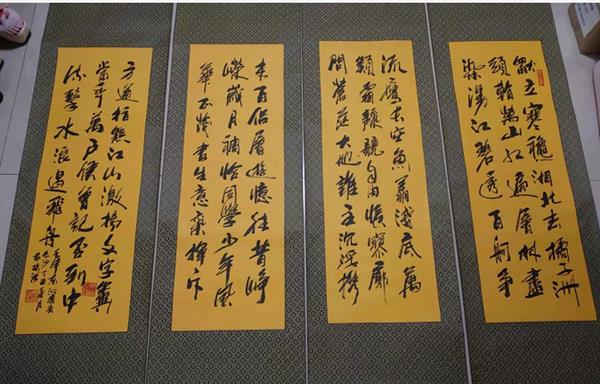 獨立寒穐湘北去橘子洲
頭看萬山紅遍層林盡
染漫江碧透百舸爭
流鷹擊長空魚翔淺底萬
類霜天競自由悵寥廓
問蒼茫大地誰主沉浮攜
來百侶曾遊憶往昔崢
嶸歲月稠恰同學少年風
華正茂書生意氣揮斥
方遒指點江山激揚文字糞
當年萬戶侯曾記否到中
流擊水浪遏飛舟
毛澤東沁園春
長沙丁酉夏月